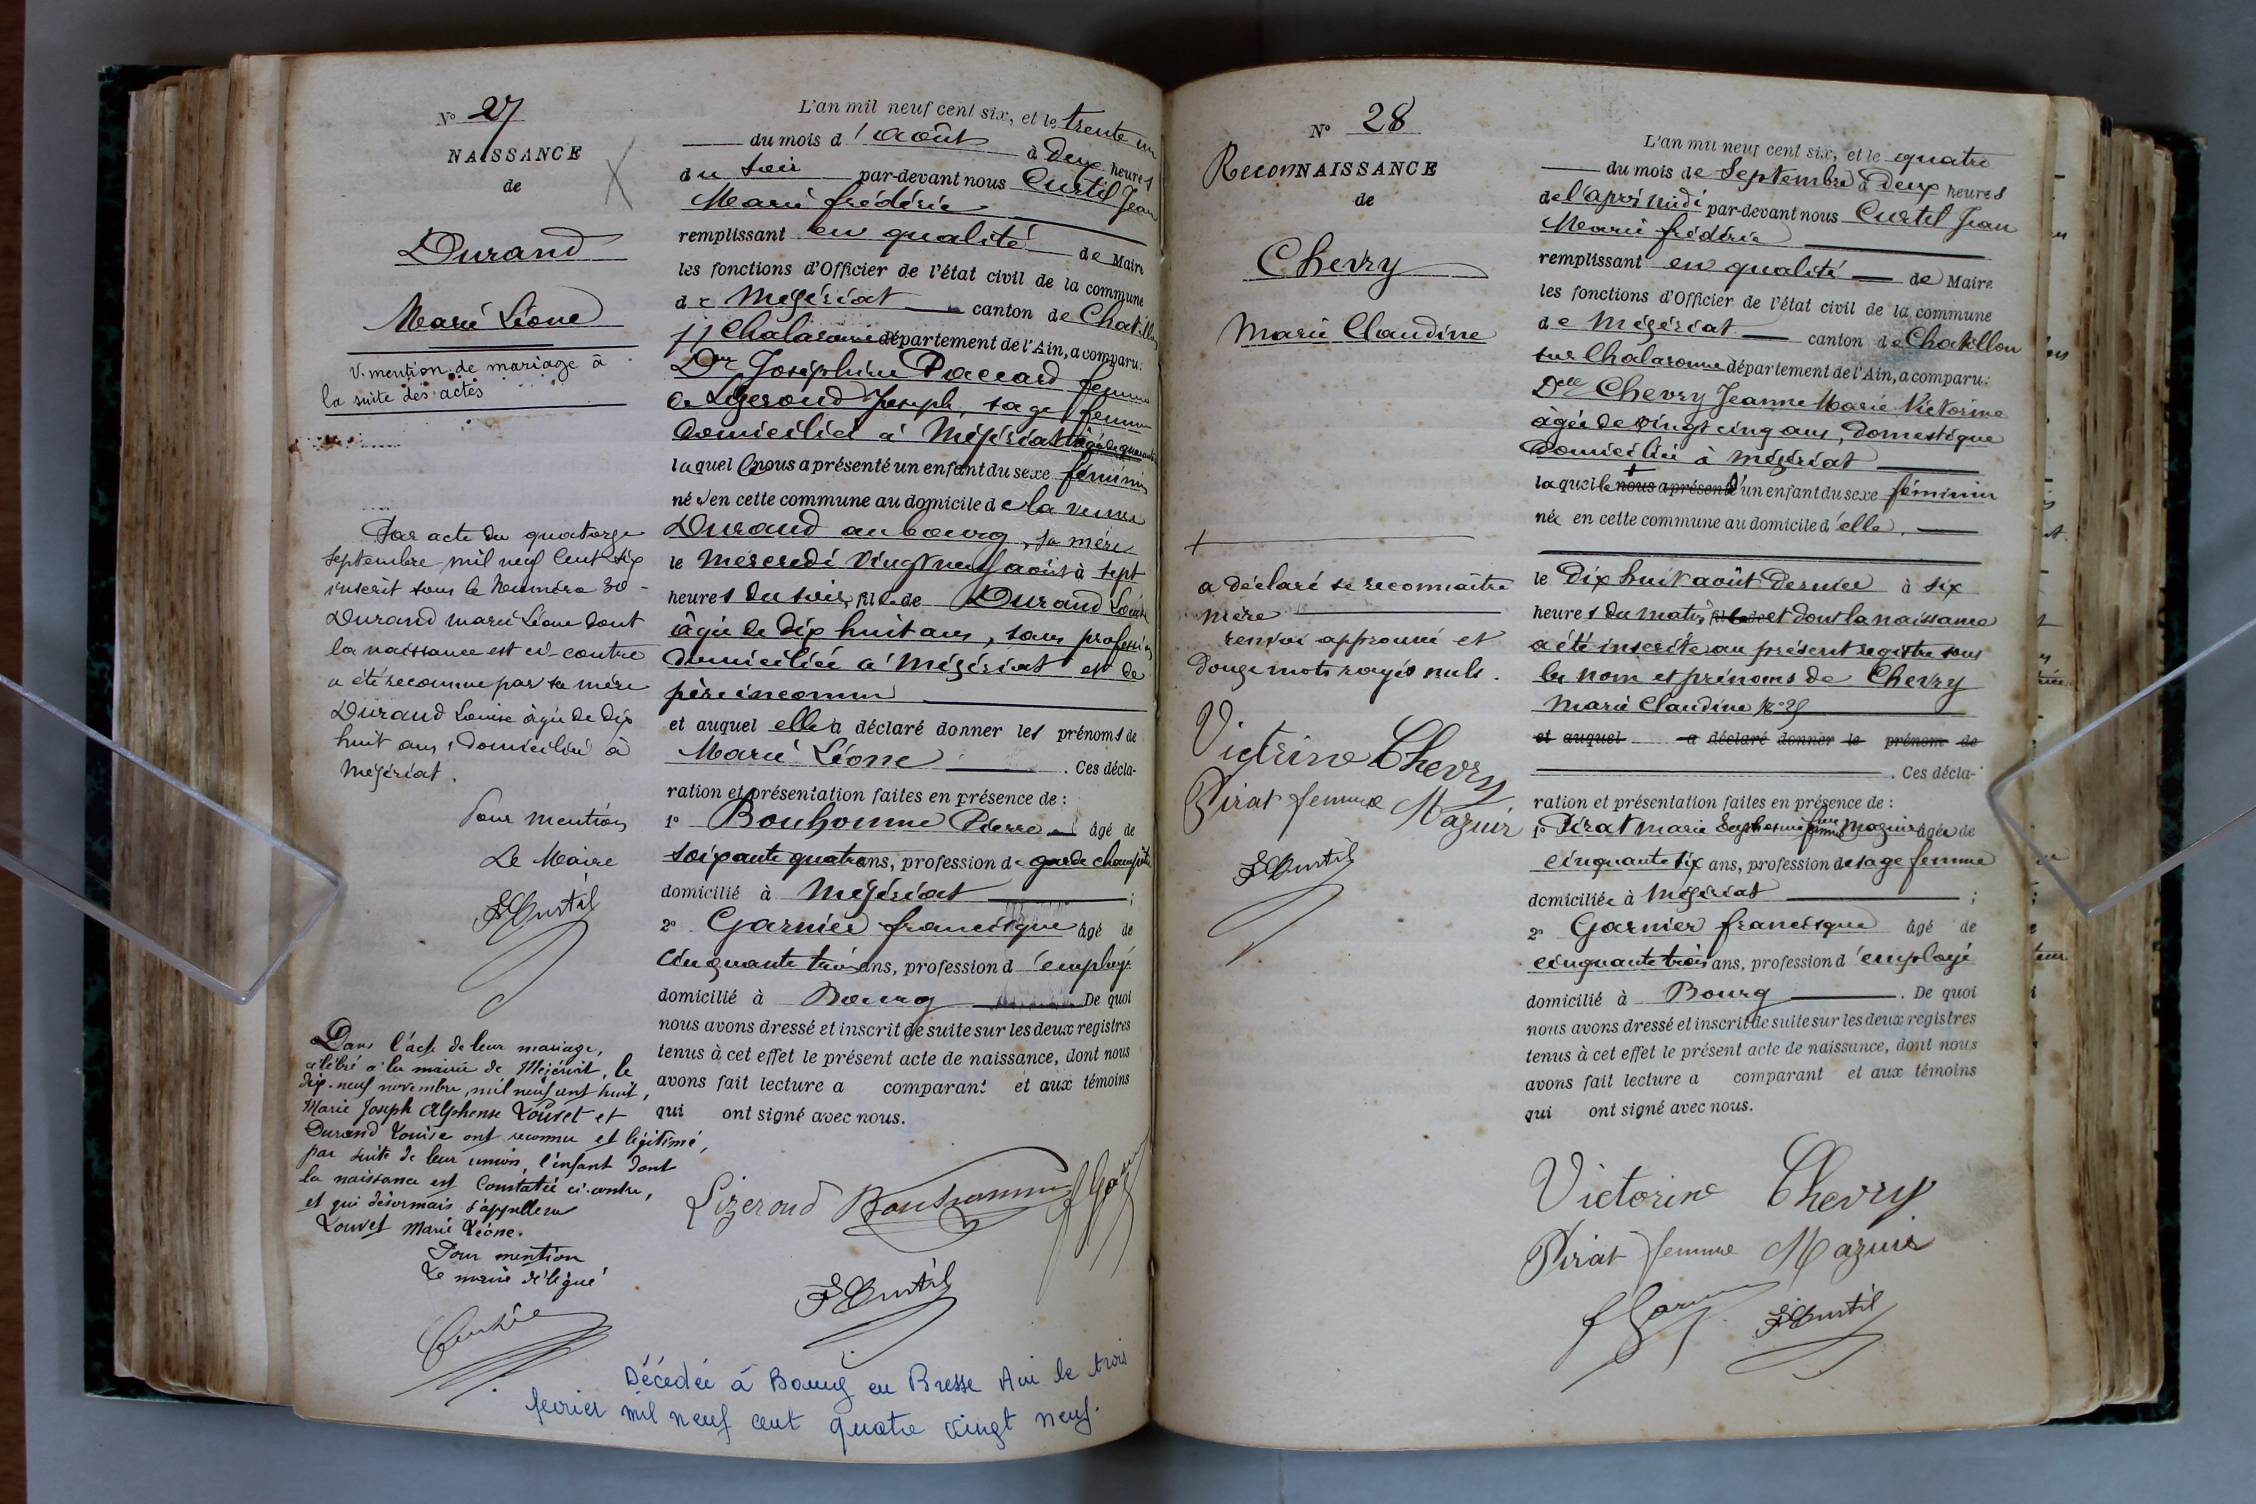 N° 27
NAISSANCE
de
Durand
Marie Léone
V. mention de mariage à
la suite des actes
Par acte du quatorze
septembre mil neuf cent six
inscrit sous le numéro 30
Durand Marie Léone dont
la naissance est ci-contre
a été reconnue par sa mère
Durand Louise âgée de dix
huit ans, domiciliée à
Mézériat.
Pour mention
Le Maire
F Curtil
Dans l'acte de leur mariage,
célébré à la mairie de Mézériat, le
dix-neuf novembre, mil neuf cent huit,
Marie Joseph Alphonse Louvet et
Durand Louise ont reconnu et légitimé,
par suite de leur union, l'enfant dont
la naissance est constatée ci-contre,
et qui désormais s'appellera
Louvet Marie Léone.
Pour mention
Le maire délégué
L'an mil neuf cent six, et le trente un
du mois d'août à deux heures
du soir par-devant nous Curtil Jean
Marie frédéric
remplissant en qualité de Maire
les fonctions d'Officier de l'état civil de la commune
de Mézériat canton de Châtillon
s/ Chalaronne département de l'Ain, a comparu:
De Joséphine Paccard femme
de Lizeroud Joseph, sage femme
domiciliée à Mézériat âgée de quarante
laquelle nous a présenté un enfant du sexe féminin
née en cette commune au domicile de la veuve
Durand au bourg, sa mère
le mercredi vingt neuf août à sept
heures du soir, fille de Durand Louise
âgée de dix huit ans, sans profession
domiciliée à Mézériat et de
père inconnu
et auquel elle a déclaré donner les prénoms de
Marie Léone . Ces décla-
ration et présentation faites en présence de :
1° Bonhomme Pierre âgé de
soixante quatre ans, profession de garde champêtre
domicilié à Mézériat ;
2° Garnier francisque âgé de
cinquante trois ans, profession d'employé
domicilié à Bourg De quoi
nous avons dressé et inscrit de suite sur les deux registres
tenus à cet effet le présent acte de naissance, dont nous
avons fait lecture a comparant et aux témoins
qui ont signé avec nous.
Lizeroud Bonhomme
F Curtil
Décédée à Bourg en Bresse Ain le trois
février mil neuf cent quatre vingt neuf.
N° 28
ReconNAISSANCE
de
Chevry
Marie Claudine
+
a déclaré se reconnaître
mère
renvoi approuvé et
douze mots rayés nuls.
Victrine Chevry
Pirat femme Mazuir
F Curtil
L'an mil neuf cent six, et le quatre
du mois de Septembre à deux heures
de l'après midi par-devant nous Curtil Jean
Marie frédéric
remplissant en qualité de Maire
les fonctions d'Officier de l'état civil de la commune
de Mézériat canton de Châtillon
sur Chalaronne département de l'Ain, a comparu:
Delle Chevry Jeanne Marie Victorine
âgée de vingt cinq ans, domestique
domiciliée à Mézériat
laquelle + nous a présenté d'un enfant du sexe féminin
née en cette commune au domicile d'elle.
le dix huit août dernier à six
heures du matin, fil de et dont la naissance
a été inscrite au présent registre sous
les nom et prénoms de Chevry
Marie Claudine N° 25
et auquel a déclaré donner le prénom de
. Ces décla-
ration et présentation faites en présence de :
1° Pirat Marie Euphosine femme Mazuir âgée de
cinquante six ans, profession de sage femme
domiciliée à Mézériat ;
2° Garnier francisque âgé de
cinquante trois ans, profession d'employé
domicilié à Bourg . De quoi
nous avons dressé et inscrit de suite sur les deux registres
tenus à cet effet le présent acte de naissance, dont nous
avons fait lecture a comparant et aux témoins
qui ont signé avec nous.
Victorine Chevry
Pirat femme Mazuir
F Garnier F Curtil